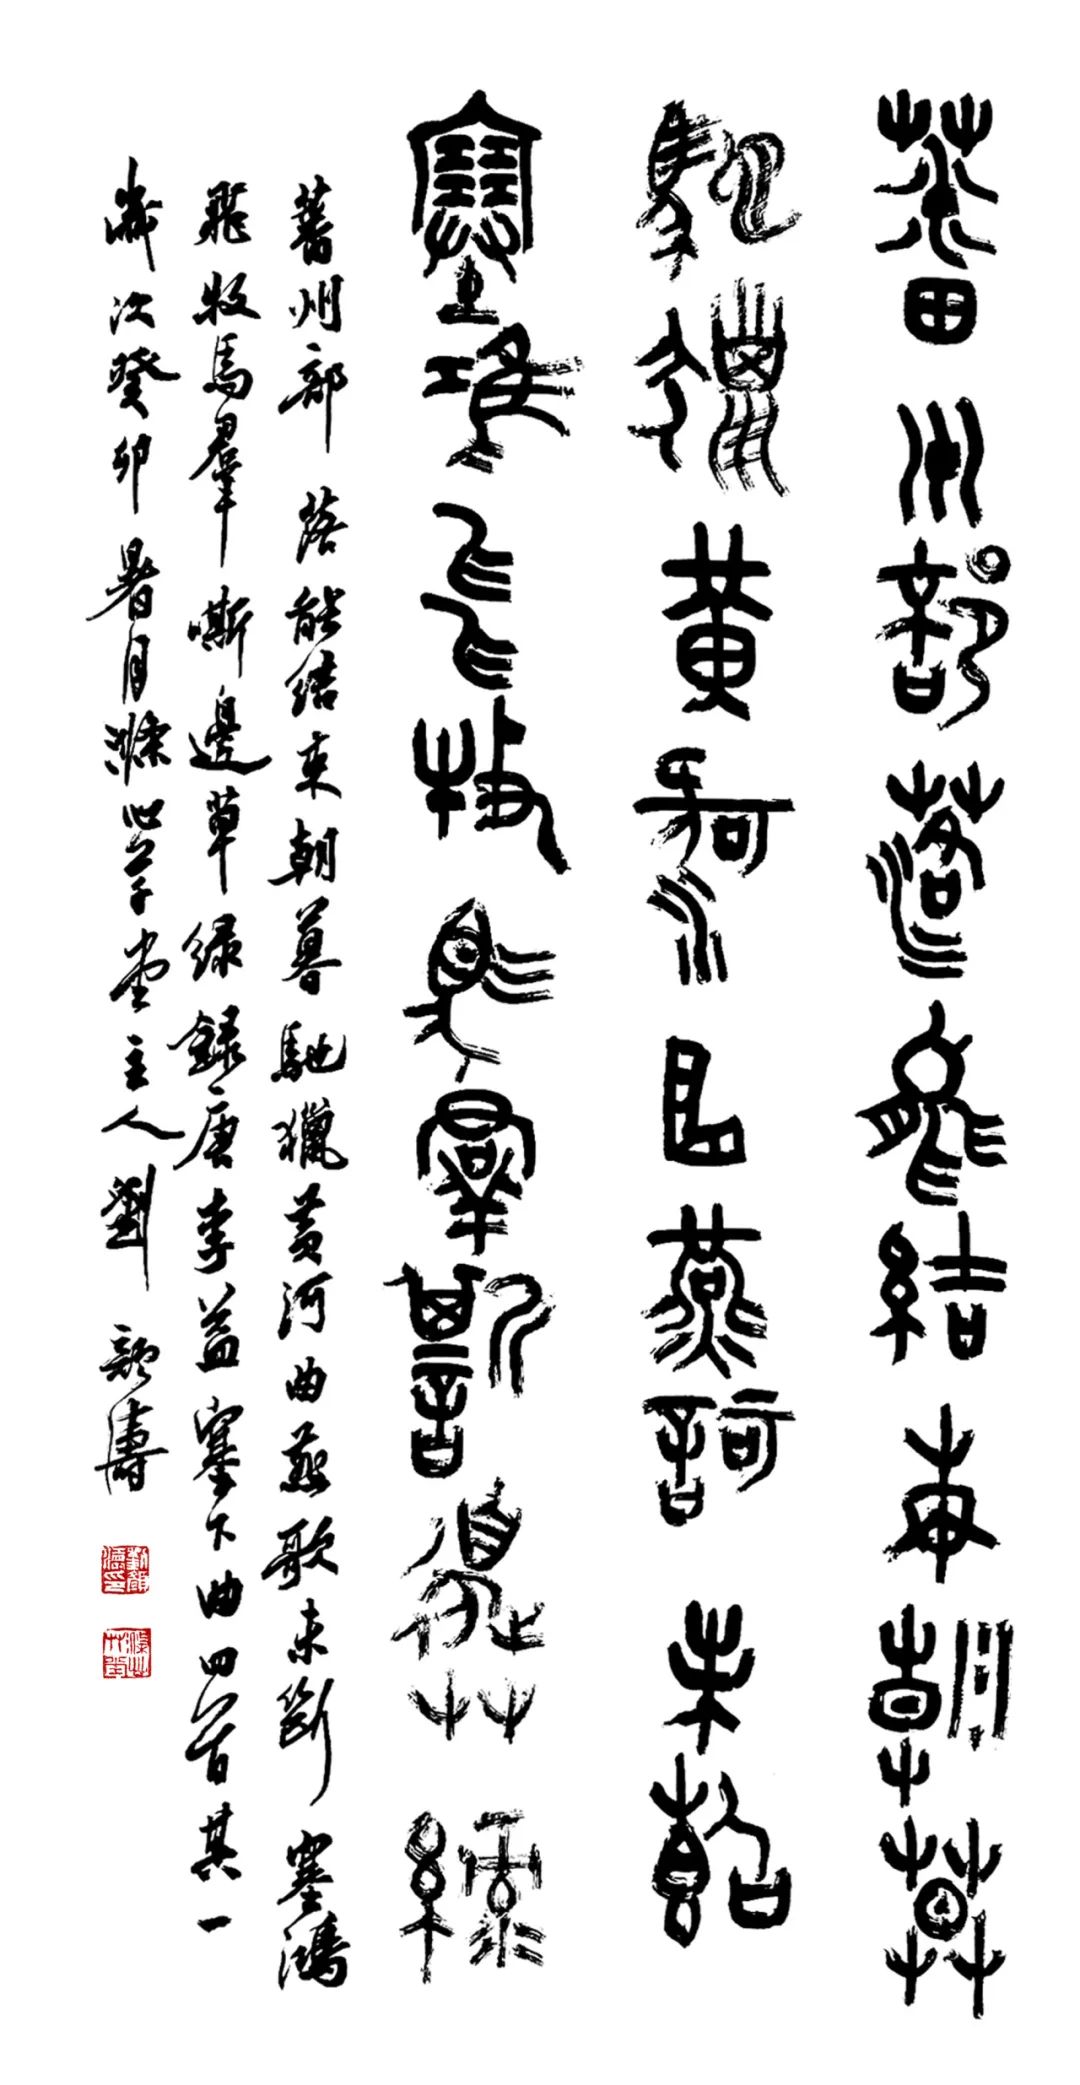 蕃州部落能結束朝暮
馳獵黃河曲燕歌未斷
塞鴻飛牧馬羣嘶邊艸綠
蕃州部落能結束朝暮馳獵黃河曲燕歌未斷塞鴻
飛牧馬羣嘶邊草綠錄唐李益塞下曲四首其一
歲次癸卯暑月滌心草堂主人劉顏濤
劉顏濤印
滌心艸堂